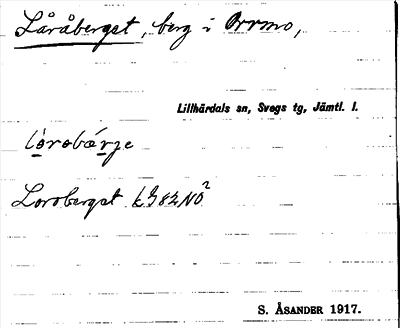 Låråberget, berg i Orrmo,
Lillhärdals sn, Svegs tg, Jämtl. l.
lórobǽrje
Loroberget kG 82 NO²
S. ÅSANDER 1917.